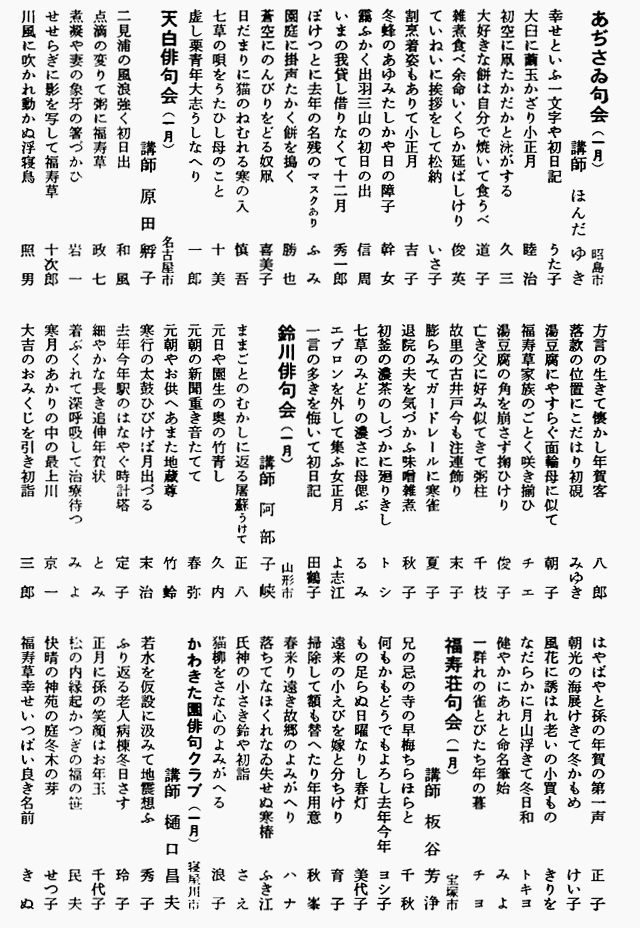 あぢさゐ句会（一月）
昭島市
講師 ほんだ ゆき
幸せといふ一文字や初日記 うた子
大臼に繭玉かざり小正月 睦治
初空に凧たかだかと泳がする 久三
大好きな餅は自分で焼いて食うべ 道子
雑煮食べ余命いくらか延ばしけり 俊英
ていねいに挨拶をして松納 いさ子
割烹着姿もありて小正月 吉子
冬蜂のあゆみたしかや日の障子 幹女
靄ふかく出羽三山の初日の出 信周
いまの我貸し借りなくて十二月 秀一郎
ぽけつとに去年の名残のマスクあり ふみ
園庭に掛声たかく餅を搗く 勝也
蒼空にのんびりをどる奴凧 喜美子
日だまりに猫のねむれる寒の入 慎吾
七草の唄をうたひし母のこと 十美
虚し栗青年大志うしなへり 一郎
天白俳句会（一月）
名古屋市
講師 原田 孵子
二見浦の風浪強く初日出 和風
点滴の変りて粥に福寿草 政七
煮凝や妻の象牙の箸づかひ 岩一
せせらぎに影を写して福寿草 十次郎
川風に吹かれ動かぬ浮寝鳥 照男
方言の生きて懐かし年賀客 八郎
落款の位置にこだはり初硯 みゆき
湯豆腐にやすらぐ面輪母に似て 朝子
福寿草家族のごとく咲き揃ひ チエ
湯豆腐の角を崩さず掬ひけり 俊子
亡き父に好み似てきて粥柱 千枝
故里の古井戸今も注連飾り 末子
膨らみてガードレールに寒雀 夏子
退院の夫を気づかふ味噌雑煮 秋子
初釜の濃茶のしづかに廻りきし トシ
七草のみどりの濃さに母偲ぶ るみ
エプロンを外して集ふ女正月 よ志江
一言の多きを悔いて初日記 田鶴子
鈴川俳句会（一月）
山形市
講師 阿部 子峡
ままごとのむかしに返る屠蘇うけて 正八
元日や園生の奥の竹青し 久内
元朝の新聞重き音たてて 春弥
元朝やお供へあまた地蔵尊 竹蛉
寒行の太鼓ひびけば月出づる 末治
去年今年駅のはなやぐ時計塔 定子
細やかな長き追伸年賀状 とみ
着ぶくれて深呼吸して治療待つ みよ
寒月のあかりの中の最上川 京一
大吉のおみくじを引き初詣 三郎
はやばやと孫の年賀の第一声 正子
朝光の海展けきて冬かもめ けい子
風花に誘はれ老いの小買もの きりを
なだらかに月山浮きて冬日和 トキヨ
健やかにあれと命名筆始 みよ
一群れの雀とびたち年の暮 チヨ
福寿荘句会（一月）
宝塚市
講師 板谷 芳浄
兄の忌の寺の早梅ちらほらと 千秋
何もかもどうでもよろし去年今年 ヨシ子
もの足らぬ日曜なりし春灯 美代子
遠来の小えびを嫁と分ちけり 育子
掃除して額も替へたり年用意 秋峯
春来り遠き故郷のよみがへり ハナ
落ちてなほくれなゐ失せぬ寒椿 ふき江
氏神の小さき鈴や初詣 さえ
猫柳をさな心のよみがへる 浪子
かわきた園俳句クラブ（一月）
寝屋川市
講師 樋口 昌夫
若水を仮設に汲みて地震想ふ 秀子
ふり返る老人病棟冬日さす 玲子
正月に孫の笑顔はお年玉 千代子
松の内縁起かつぎの福の笹 民夫
快晴の神苑の庭冬木の芽 せつ子
福寿草幸せいつぱい良き名前 きぬ